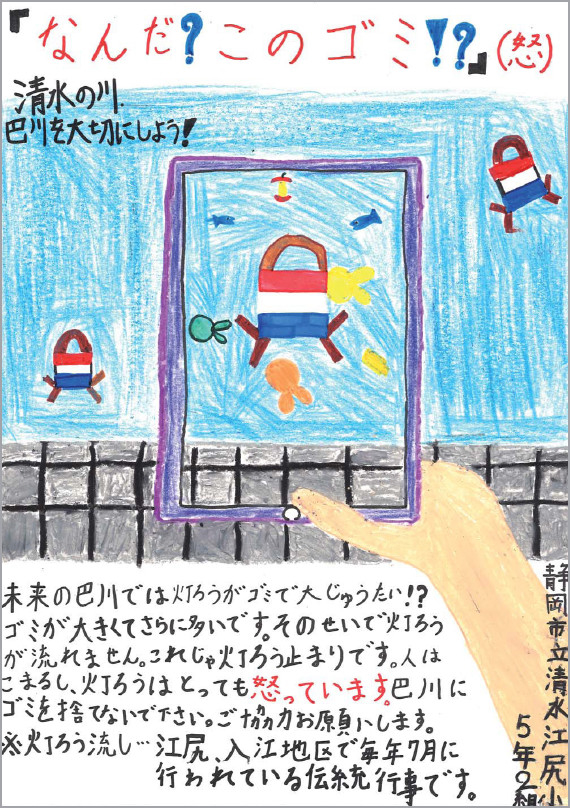 『なんだ?このゴミ!?』(怒)
清水の川、
巴川を大切にしよう!
未来の巴川では灯ろうがゴミで大じゅうたい!?
ゴミが大きくてさらに多いです。そのせいで灯ろう
が流れません。これじゃ灯ろう止まりです。人は
こまるし、灯ろうはとっても怒っています。巴川に
ゴミを捨てないで下さい。ご協力お願いします。
※灯ろう流し…江尻、入江地区で毎年7月に
行われている伝統行事です。
静岡市立清水江尻小
5年2組